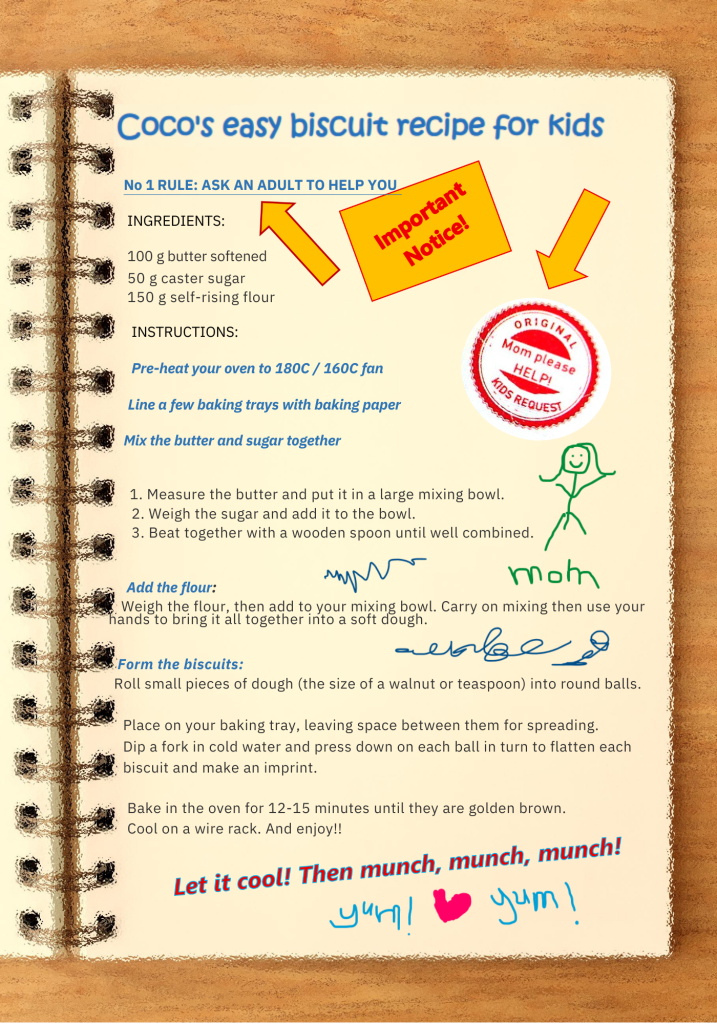 Coco's easy biscuit recipe for kids
No 1 RULE: ASK AN ADULT TO HELP YOU
Important
Notice!
INGREDIENTS:
100 g butter softened
50 g caster sugar
150 g self-rising flour
ORIGINAL
Mom please
HELP!
KIDS REQUEST
INSTRUCTIONS:
Pre-heat your oven to 180C / 160C fan
Line a few baking trays with baking paper
Mix the butter and sugar together
1. Measure the butter and put it in a large mixing bowl.
2. Weigh the sugar and add it to the bowl.
3. Beat together with a wooden spoon until well combined.
mom
Add the flour:
Weigh the flour, then add to your mixing bowl. Carry on mixing then use your
hands to bring it all together into a soft dough.
Form the biscuits:
Roll small pieces of dough (the size of a walnut or teaspoon) into round balls.
Place on your baking tray, leaving space between them for spreading.
Dip a fork in cold water and press down on each ball in turn to flatten each
biscuit and make an imprint.
Bake in the oven for 12-15 minutes until they are golden brown.
Cool on a wire rack. And enjoy!!
Let it cool! Then munch, munch, munch!
yum! yum!